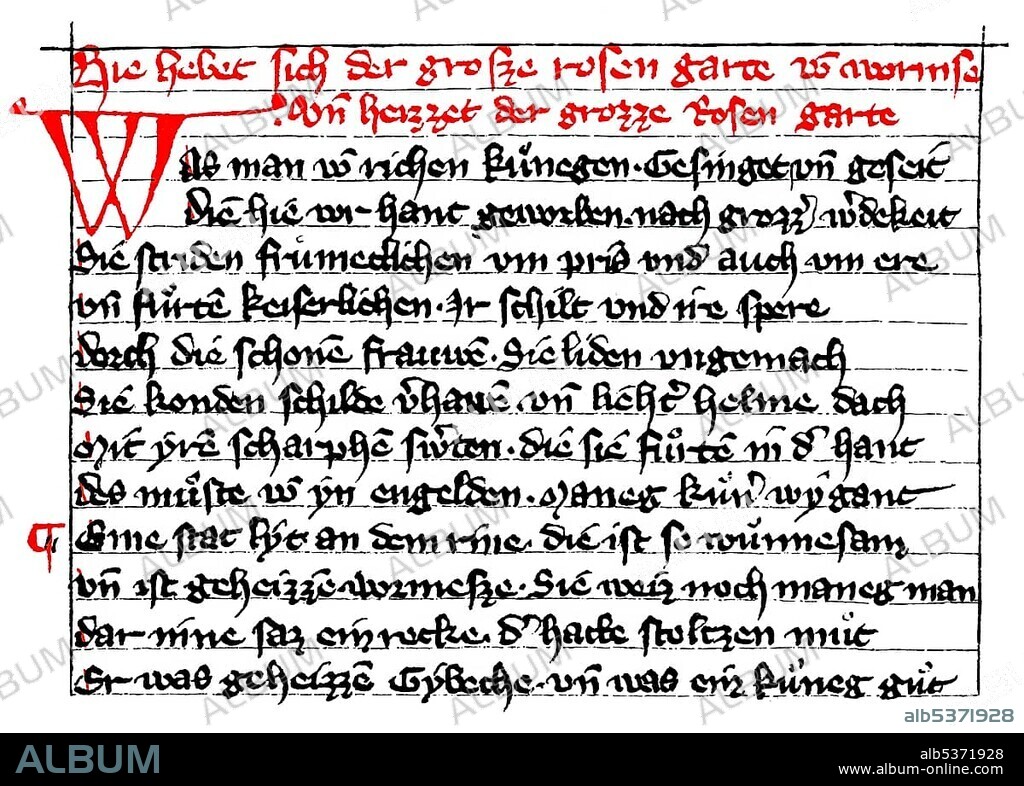 Hie hebet sich der grosze rosen garte vō wormse
vn̄ heizzet der grozze Rosen garte
Was man vō richen kuͦnegen · Gesinget vn̄ geseit
Die hie vor hant geworben · nach grozz̄ w̄dekeit
Sie striden fruͦmeclichen vm pris vnd auch vm ere
vn̄ fuͦrtē keiserlichen · Ir schilt vnd ire spere
dorch die schonē frauwē · Sie liden vngemach
Sie konden schilde v̄hawē · vn̄ lieht̄ helme dach
Mit yrē scharphē sw̄ten · die sie fuͦrtē in d̄ hant
des muͦste vō yn engelden · Maneg kuͦn̄ wygant
¶ Eine stat lyt an dem rine · die ist so wuͦnnesam
vn̄ ist geheizzē wormesze · Sie weiz noch maneg man
dar inne saz ein recke · d̄ hatte stoltzen muͦt
Er was geheizzē Gybeche · vn̄ was ein kuͦneg guͦt
alb5371928
ALBUM
alb5371928
www.album-online.com